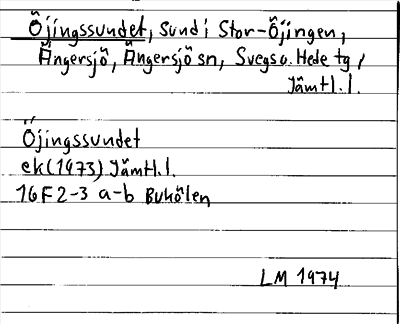 Öjingssundet, sund i Stor-Öjingen,
Ängersjö, Ängersjö sn, Svegs o. Hede tg,
Jämtl.l.
Öjingssundet
ek(1973) Jämtl.l.
16F2-3 a-b Buhölen
LM 1974